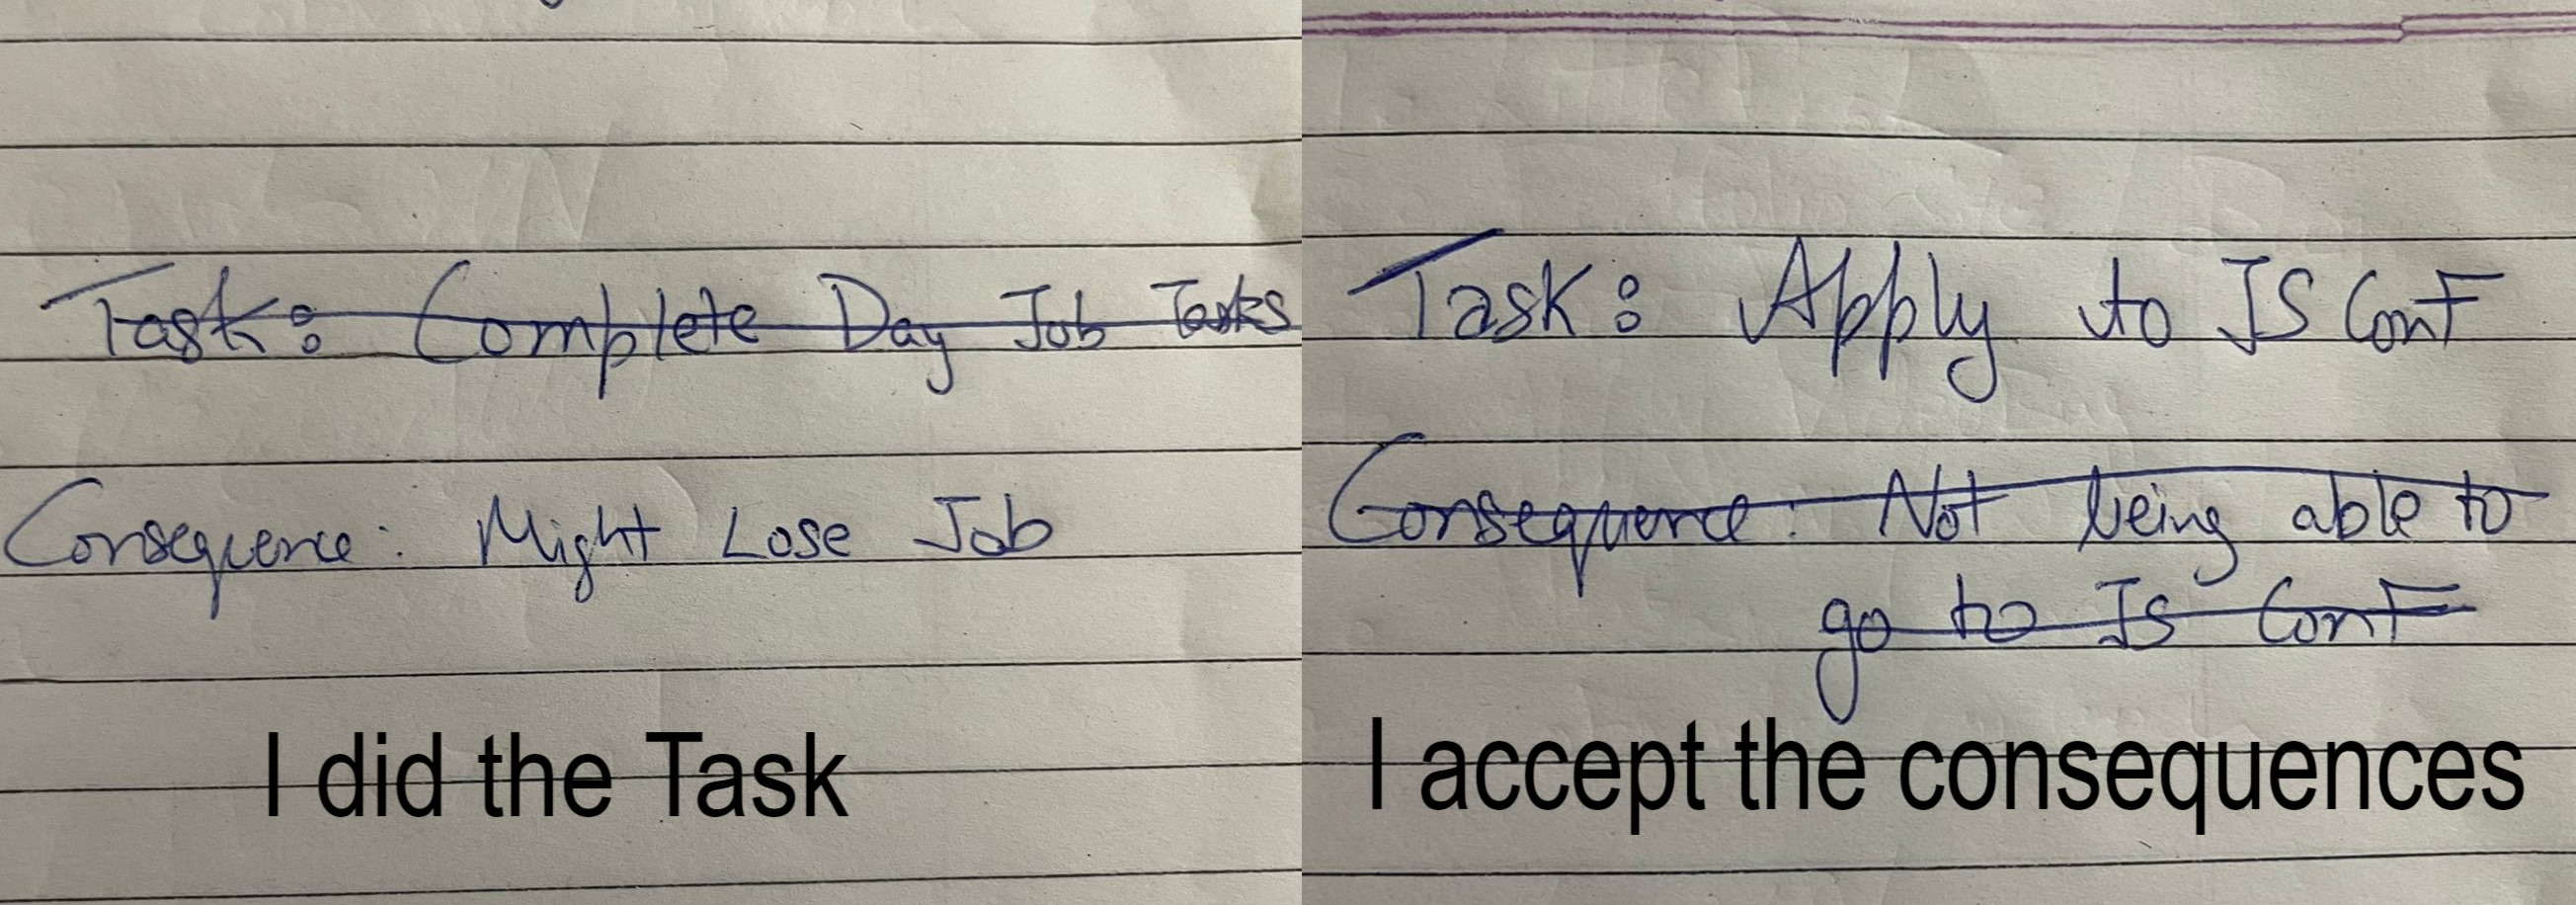 Task: Complete Day Job Tasks
Consequence: Might Lose Job
I did the Task
Task: Apply to JS ConF
Consequence: Not being able to
go to Js ConF
I accept the consequences